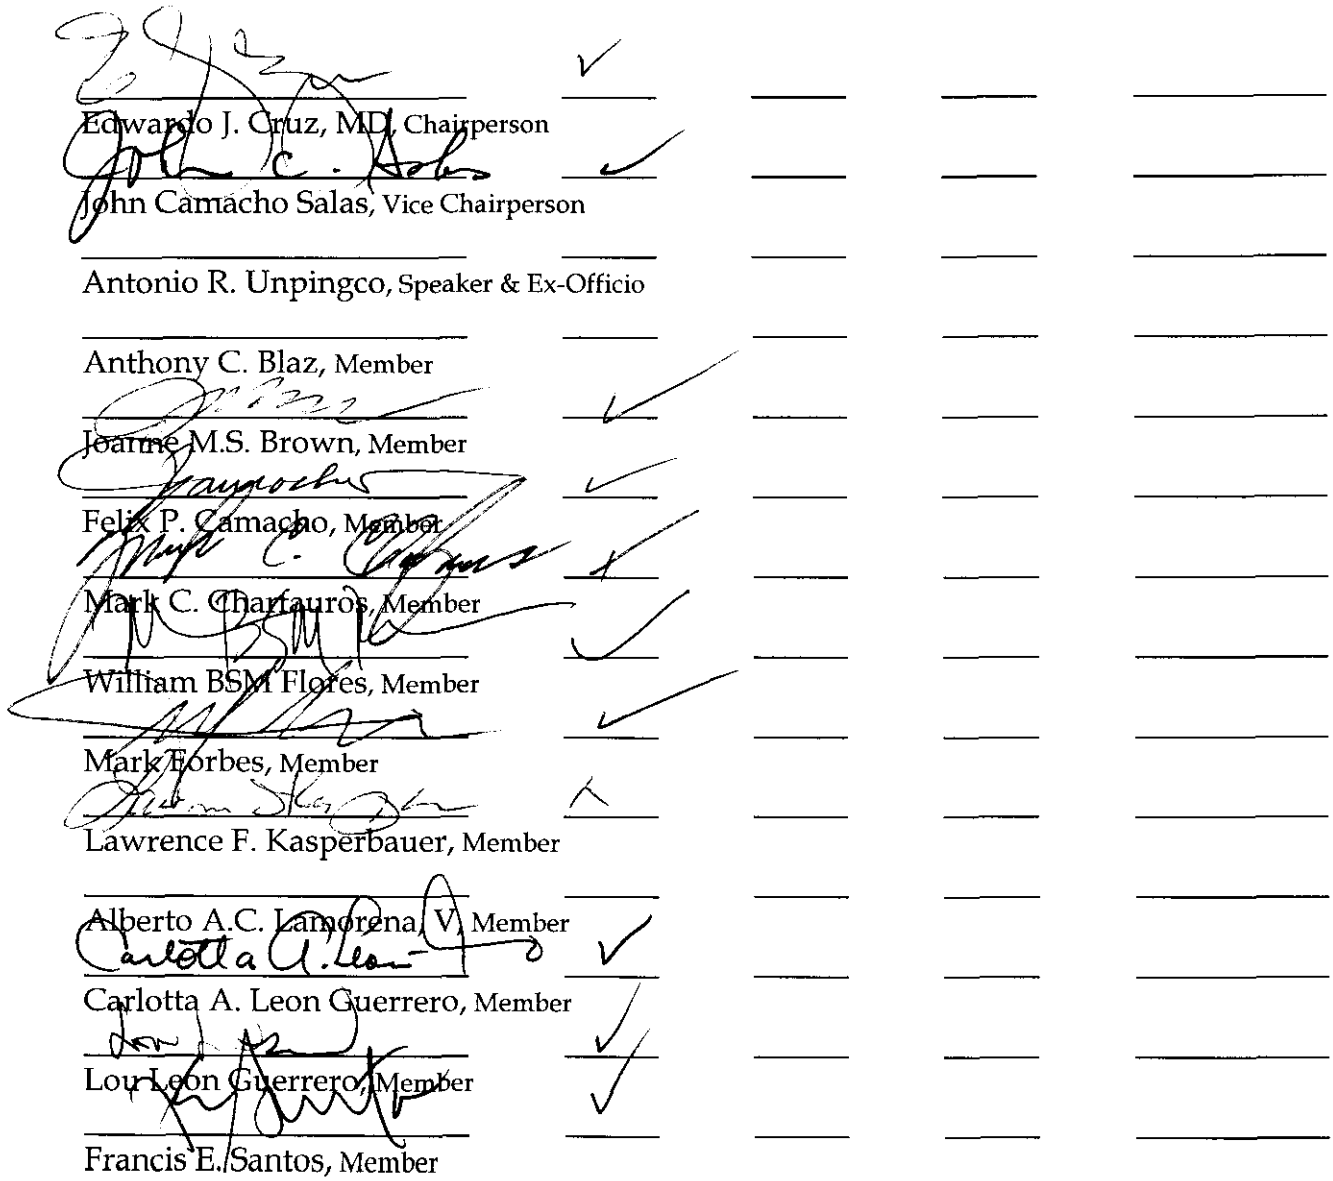 Edwardo J. Cruz, MD, Chairperson
John C. Salas
John Camacho Salas, Vice Chairperson
Antonio R. Unpingco, Speaker & Ex-Officio
Anthony C. Blaz, Member
Joanne M.S. Brown, Member
Felix P. Camacho, Member
Mark C. Charfauros, Member
William BSM Flores, Member
Mark Forbes, Member
Lawrence F. Kasperbauer, Member
Alberto A.C. Lamorena, V, Member
Carlotta A. Leon
Carlotta A. Leon Guerrero, Member
Lou Leon Guerrero, Member
Francis E. Santos, Member